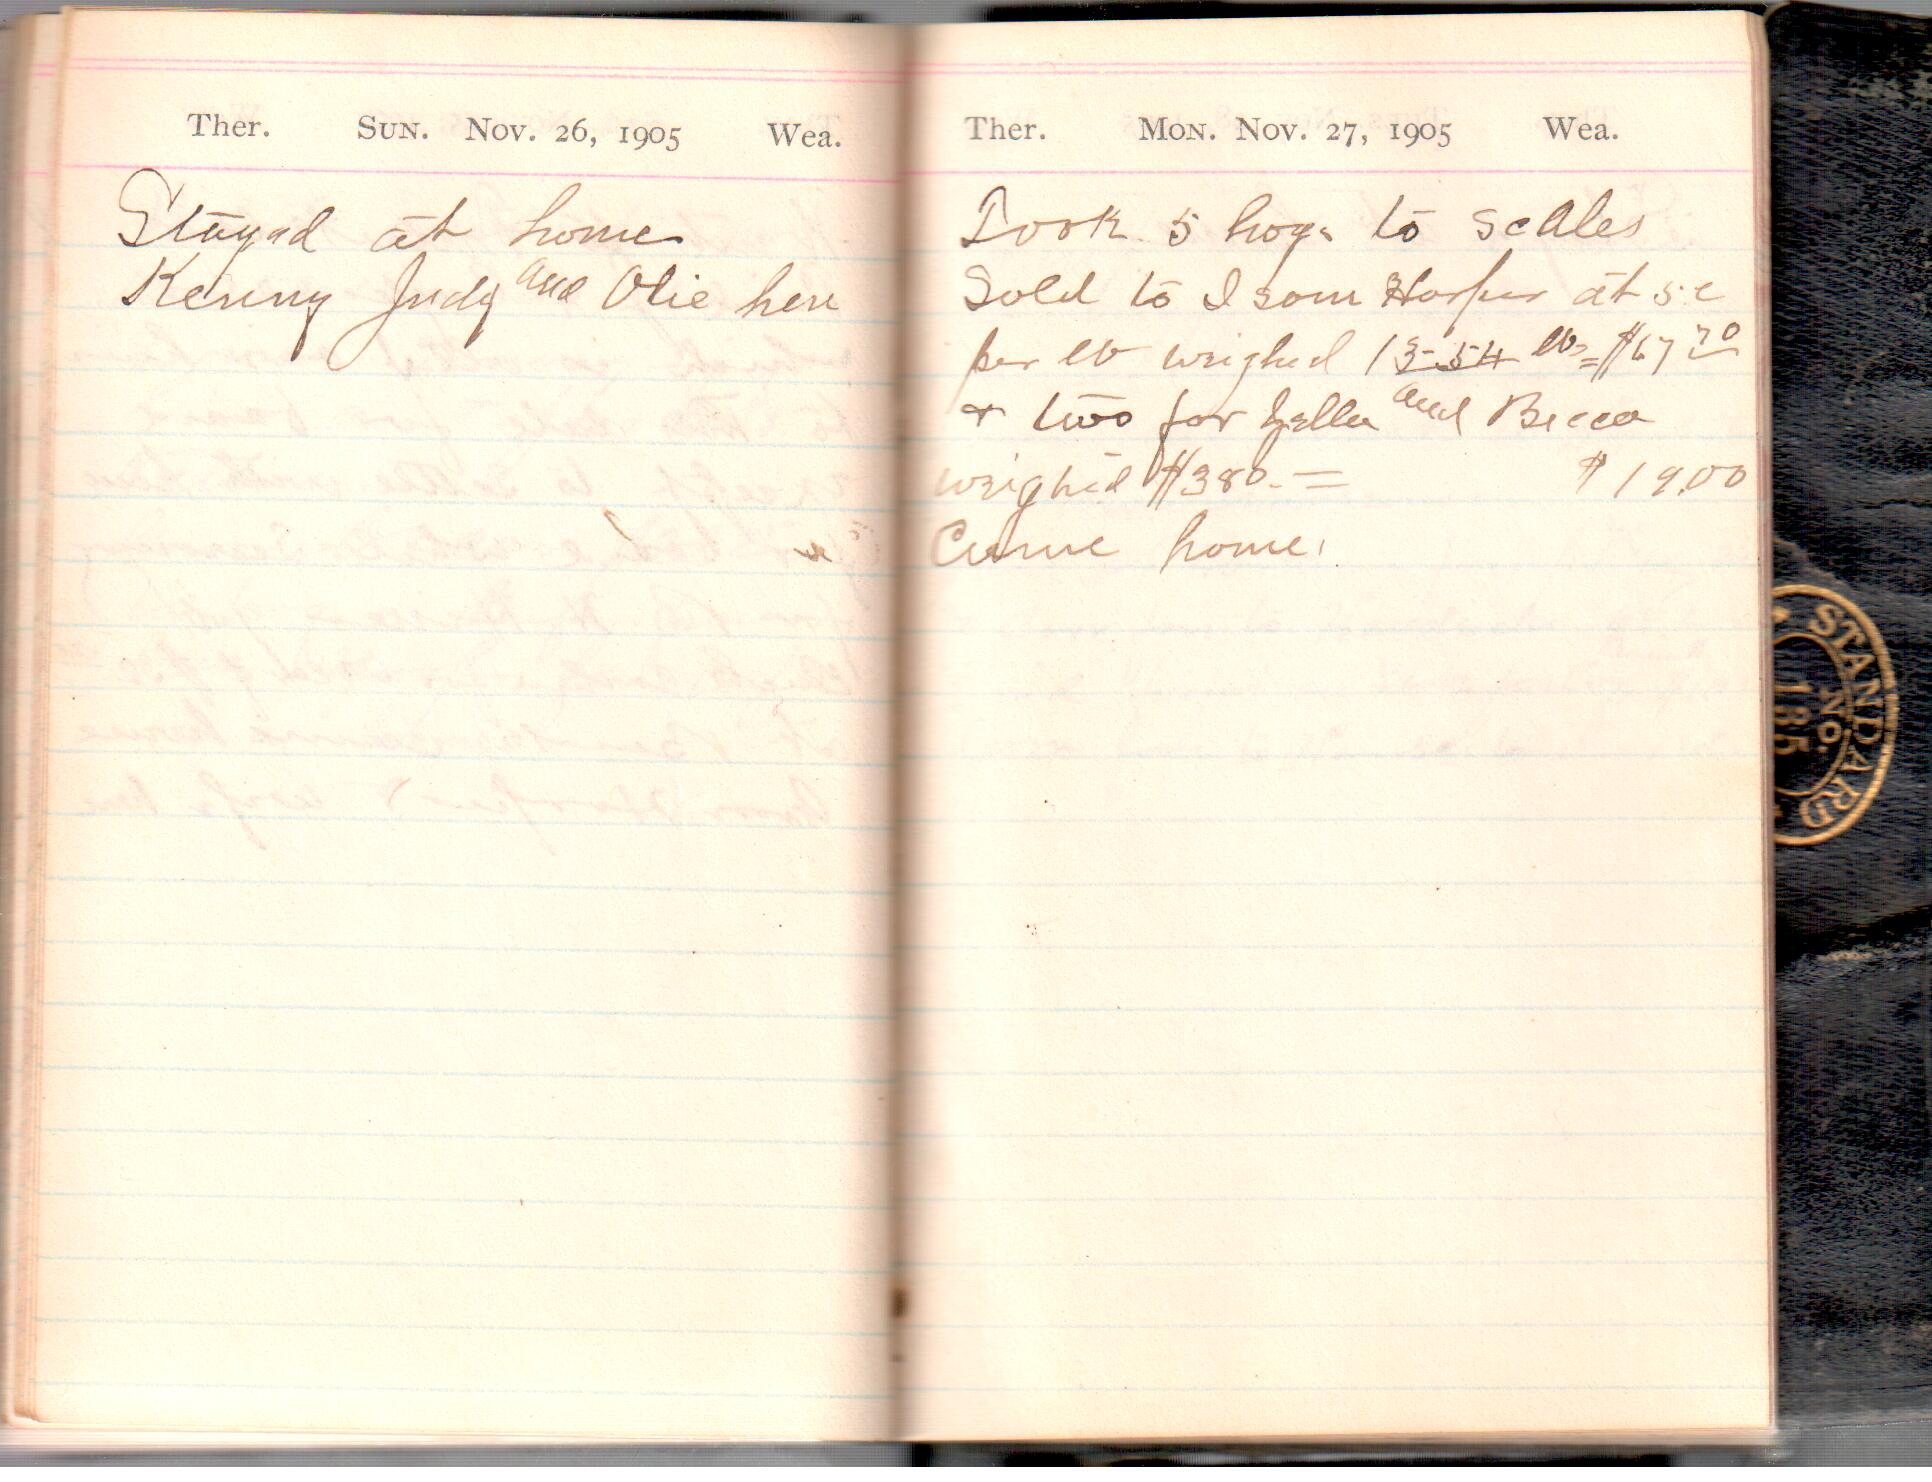 Ther. Sun. Nov. 26, 1905 Wea.
Stayed at home
Kenny Judy and Olie here
Ther. Mon. Nov. 27, 1905 Wea.
Took 5 hogs to scales
Sold to Isom Harper at 5 c
per lb weighed 1354 lbs = $67 70
& two for Zella and Becca
weighed #380 - = $19.00
Came home.
STANDARD
No.
185